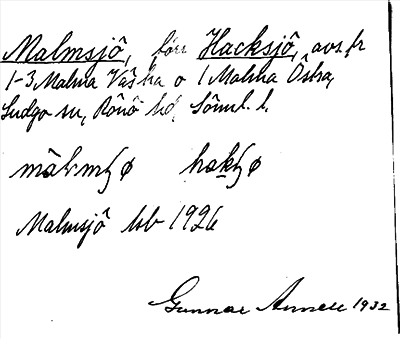 Malmsjö, förr Hacksjö, avs. fr
1-3 Malma Västra o 1 Malma Östra,
Ludgo sn, Rönö hd, Söml. l.
hak
Malmsjö hb 1926
Gunnar Annell 1932